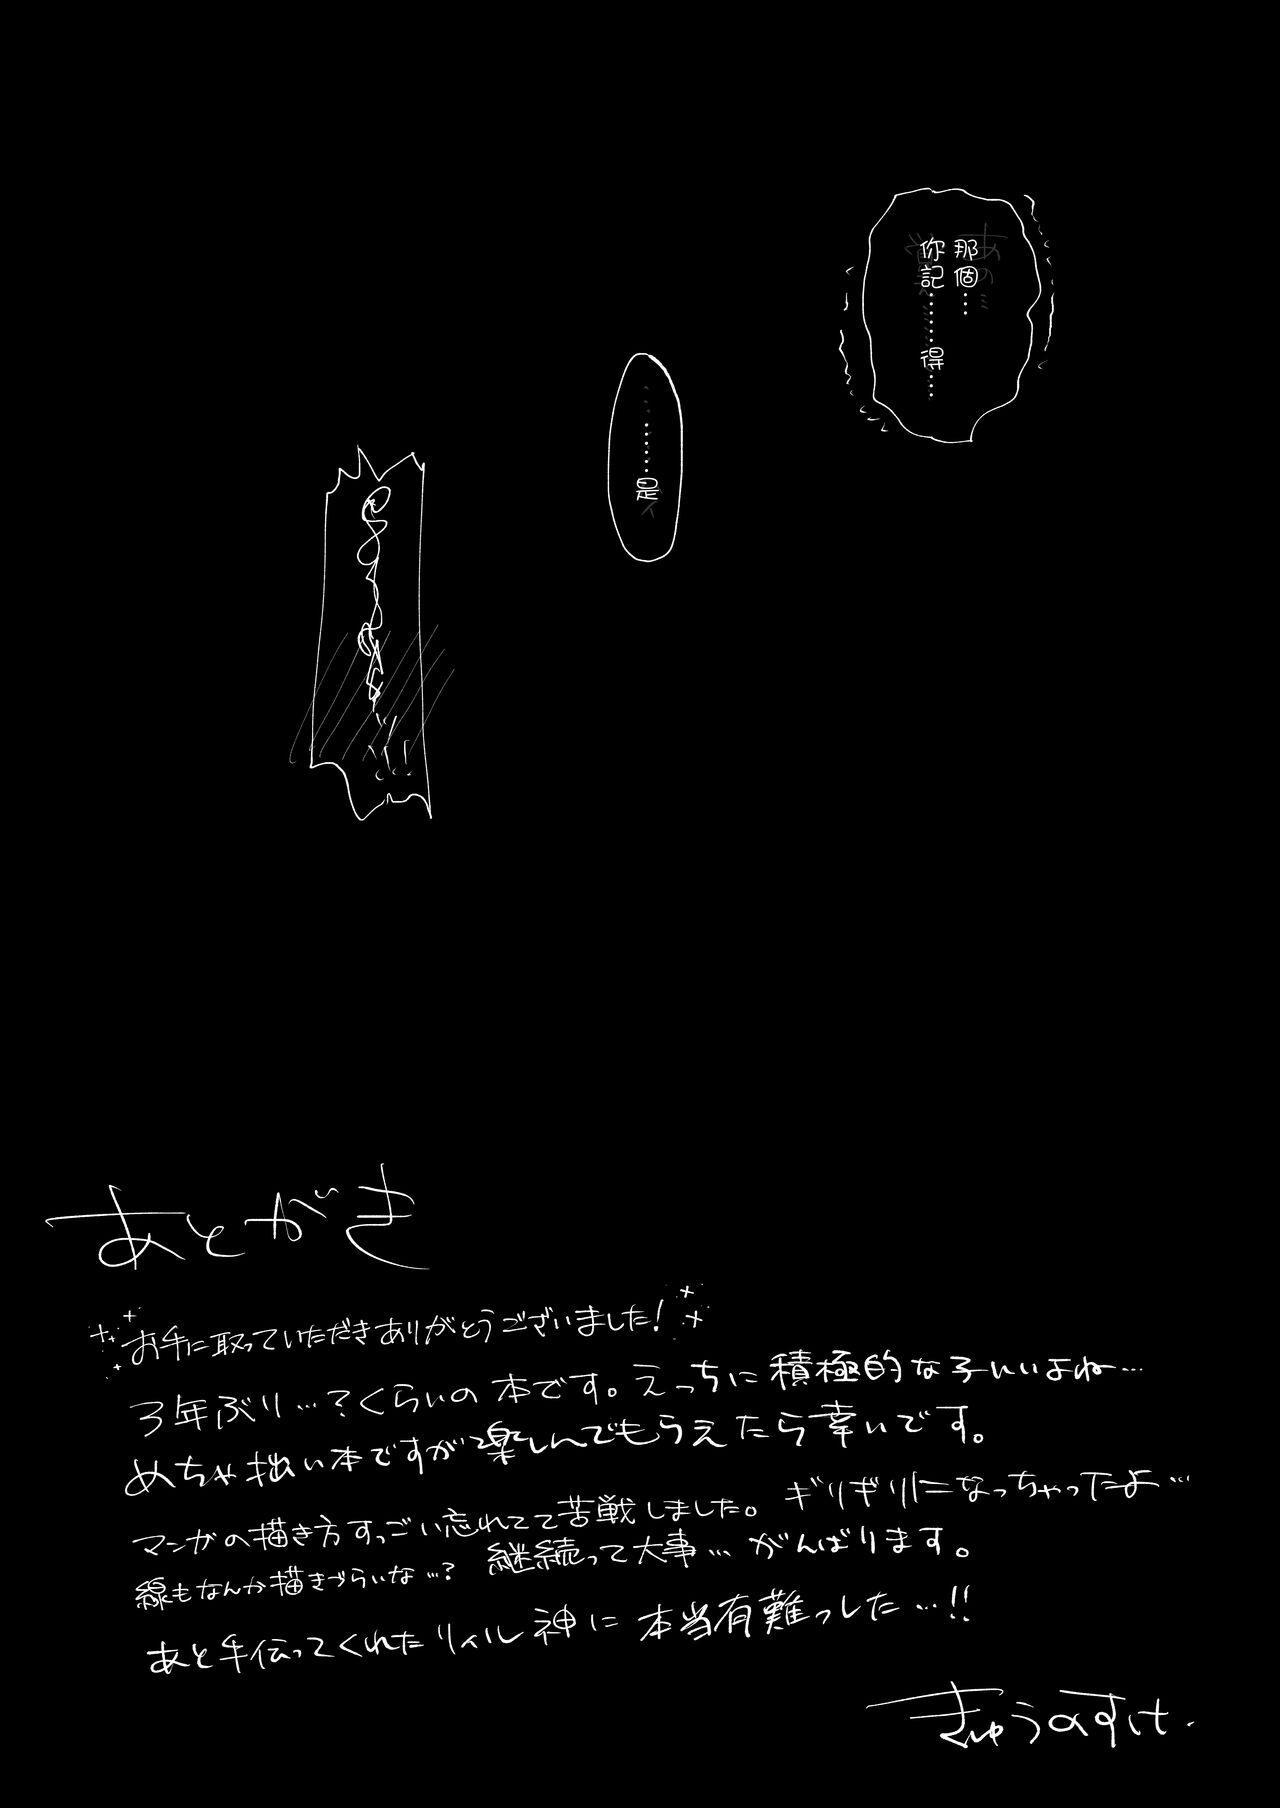 那個…
你記………得…
………是
あとがき
お手に取っていただきありがとうございました!
3年ぶり…?くらいの本です。えっちに積極的な子いいよね…
めちゃ拙い本ですが楽しんでもらえたら幸いです。
マンガの描き方すっごい忘れてて苦戦しました。ギリギリになっちゃったよ…
線もなんか描きづらいな…?継続って大事…がんばります。
あと手伝ってくれたリィル神に本当有難っした…!!
きゅうのすけ.